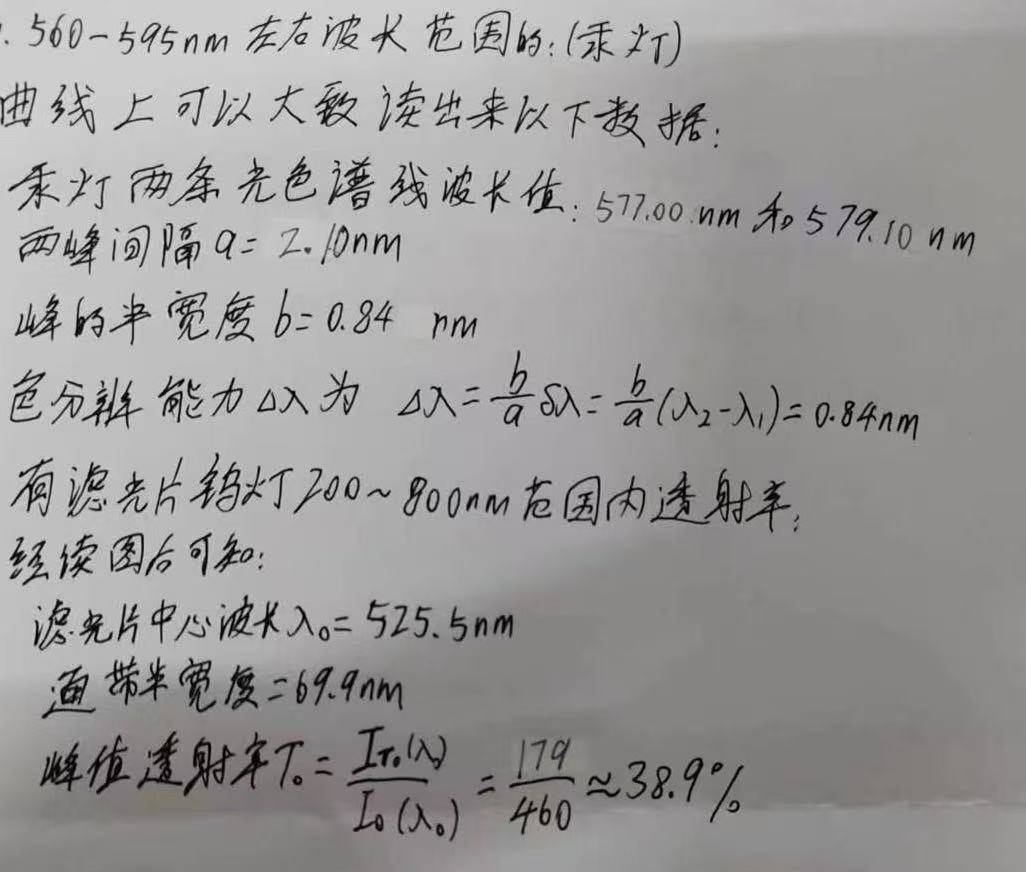 . 560-595nm 左右波长范围的:(汞灯)
曲线上可以大致读出来以下数据:
汞灯两条光色谱线波长值: 577.00 nm 和 579.10 nm
两峰间隔 a = 2.10nm
峰的半宽度 b = 0.84 nm
色分辨能力Δλ为 Δλ = b/a δλ = b/a (λ₂-λ₁) = 0.84nm
有滤光片钨灯200~800nm范围内透射率:
经读图后可知:
滤光片中心波长λ₀ = 525.5nm
通带半宽度 = 69.9nm
峰值透射率T₀ = I_T₀(λ)/I₀(λ₀) = 179/460 ≈ 38.9%